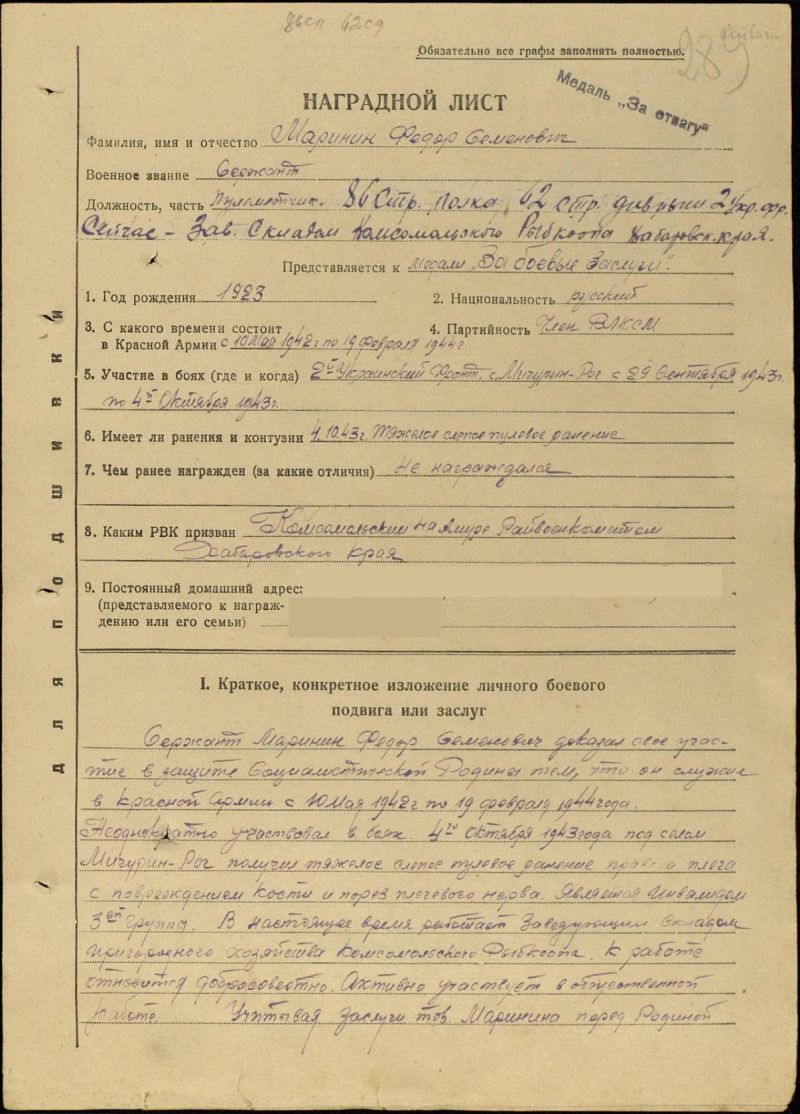 86сп. 62сд
Обязательно все графы заполнять полностью.
289
НАГРАДНОЙ ЛИСТ
Медаль „За отвагу“
Фамилия, имя и отчество Маринин Федор Семенович
Военное звание Сержант
Должность, часть Пулеметчик 86 стр. полка 62 стр. дивизии 2 Укр. фр.
Сейчас – Зав. Складом Комсомольского Рыбкоопа Хабаровск. края.
Представляется к медали „За боевые Заслуги“.
1. Год рождения 1923
2. Национальность русский
3. С какого времени состоит
в Красной Армии с 10 Мая 1942 г по 19 февраля 1944 г.
4. Партийность Член ВЛКСМ
5. Участие в боях (где и когда) 2й Украинский Фронт. с. Мичурин-Рог с 29 Сентября 1943г.
по 4е Октября 1943г.
6. Имеет ли ранения и контузии 4.10.43г. Тяжелое слепое пулевое ранение
7. Чем ранее награжден (за какие отличия) Не награждался
8. Каким РВК призван Комсомольским на Амуре Райвоенкоматом
Хабаровского края
9. Постоянный домашний адрес:
(представляемого к награж-
дению или его семьи)
Для подшивки
I. Краткое, конкретное изложение личного боевого
подвига или заслуг
Сержант Маринин Федор Семенович доказал свое учас-
тие в защите Социалистической Родины тем, что он служил
в Красной Армии с 10 Мая 1942 г по 19 февраля 1944 года.
Неоднократно участвовал в боях. 4го Октября 1943 года под селом
Мичурин-Рог получил тяжелое слепое пулевое ранение правого плеча
с повреждением кости и порез плечевого нерва. Является Инвалидом
3ей Группы. В настоящее время работает Заведующим Складом
пригородного хозяйства Комсомольского Рыбкоопа. К работе
относится добросовестно. Активно участвует в общественной
работе. Учитывая Заслуги тов. Маринина перед Родиной